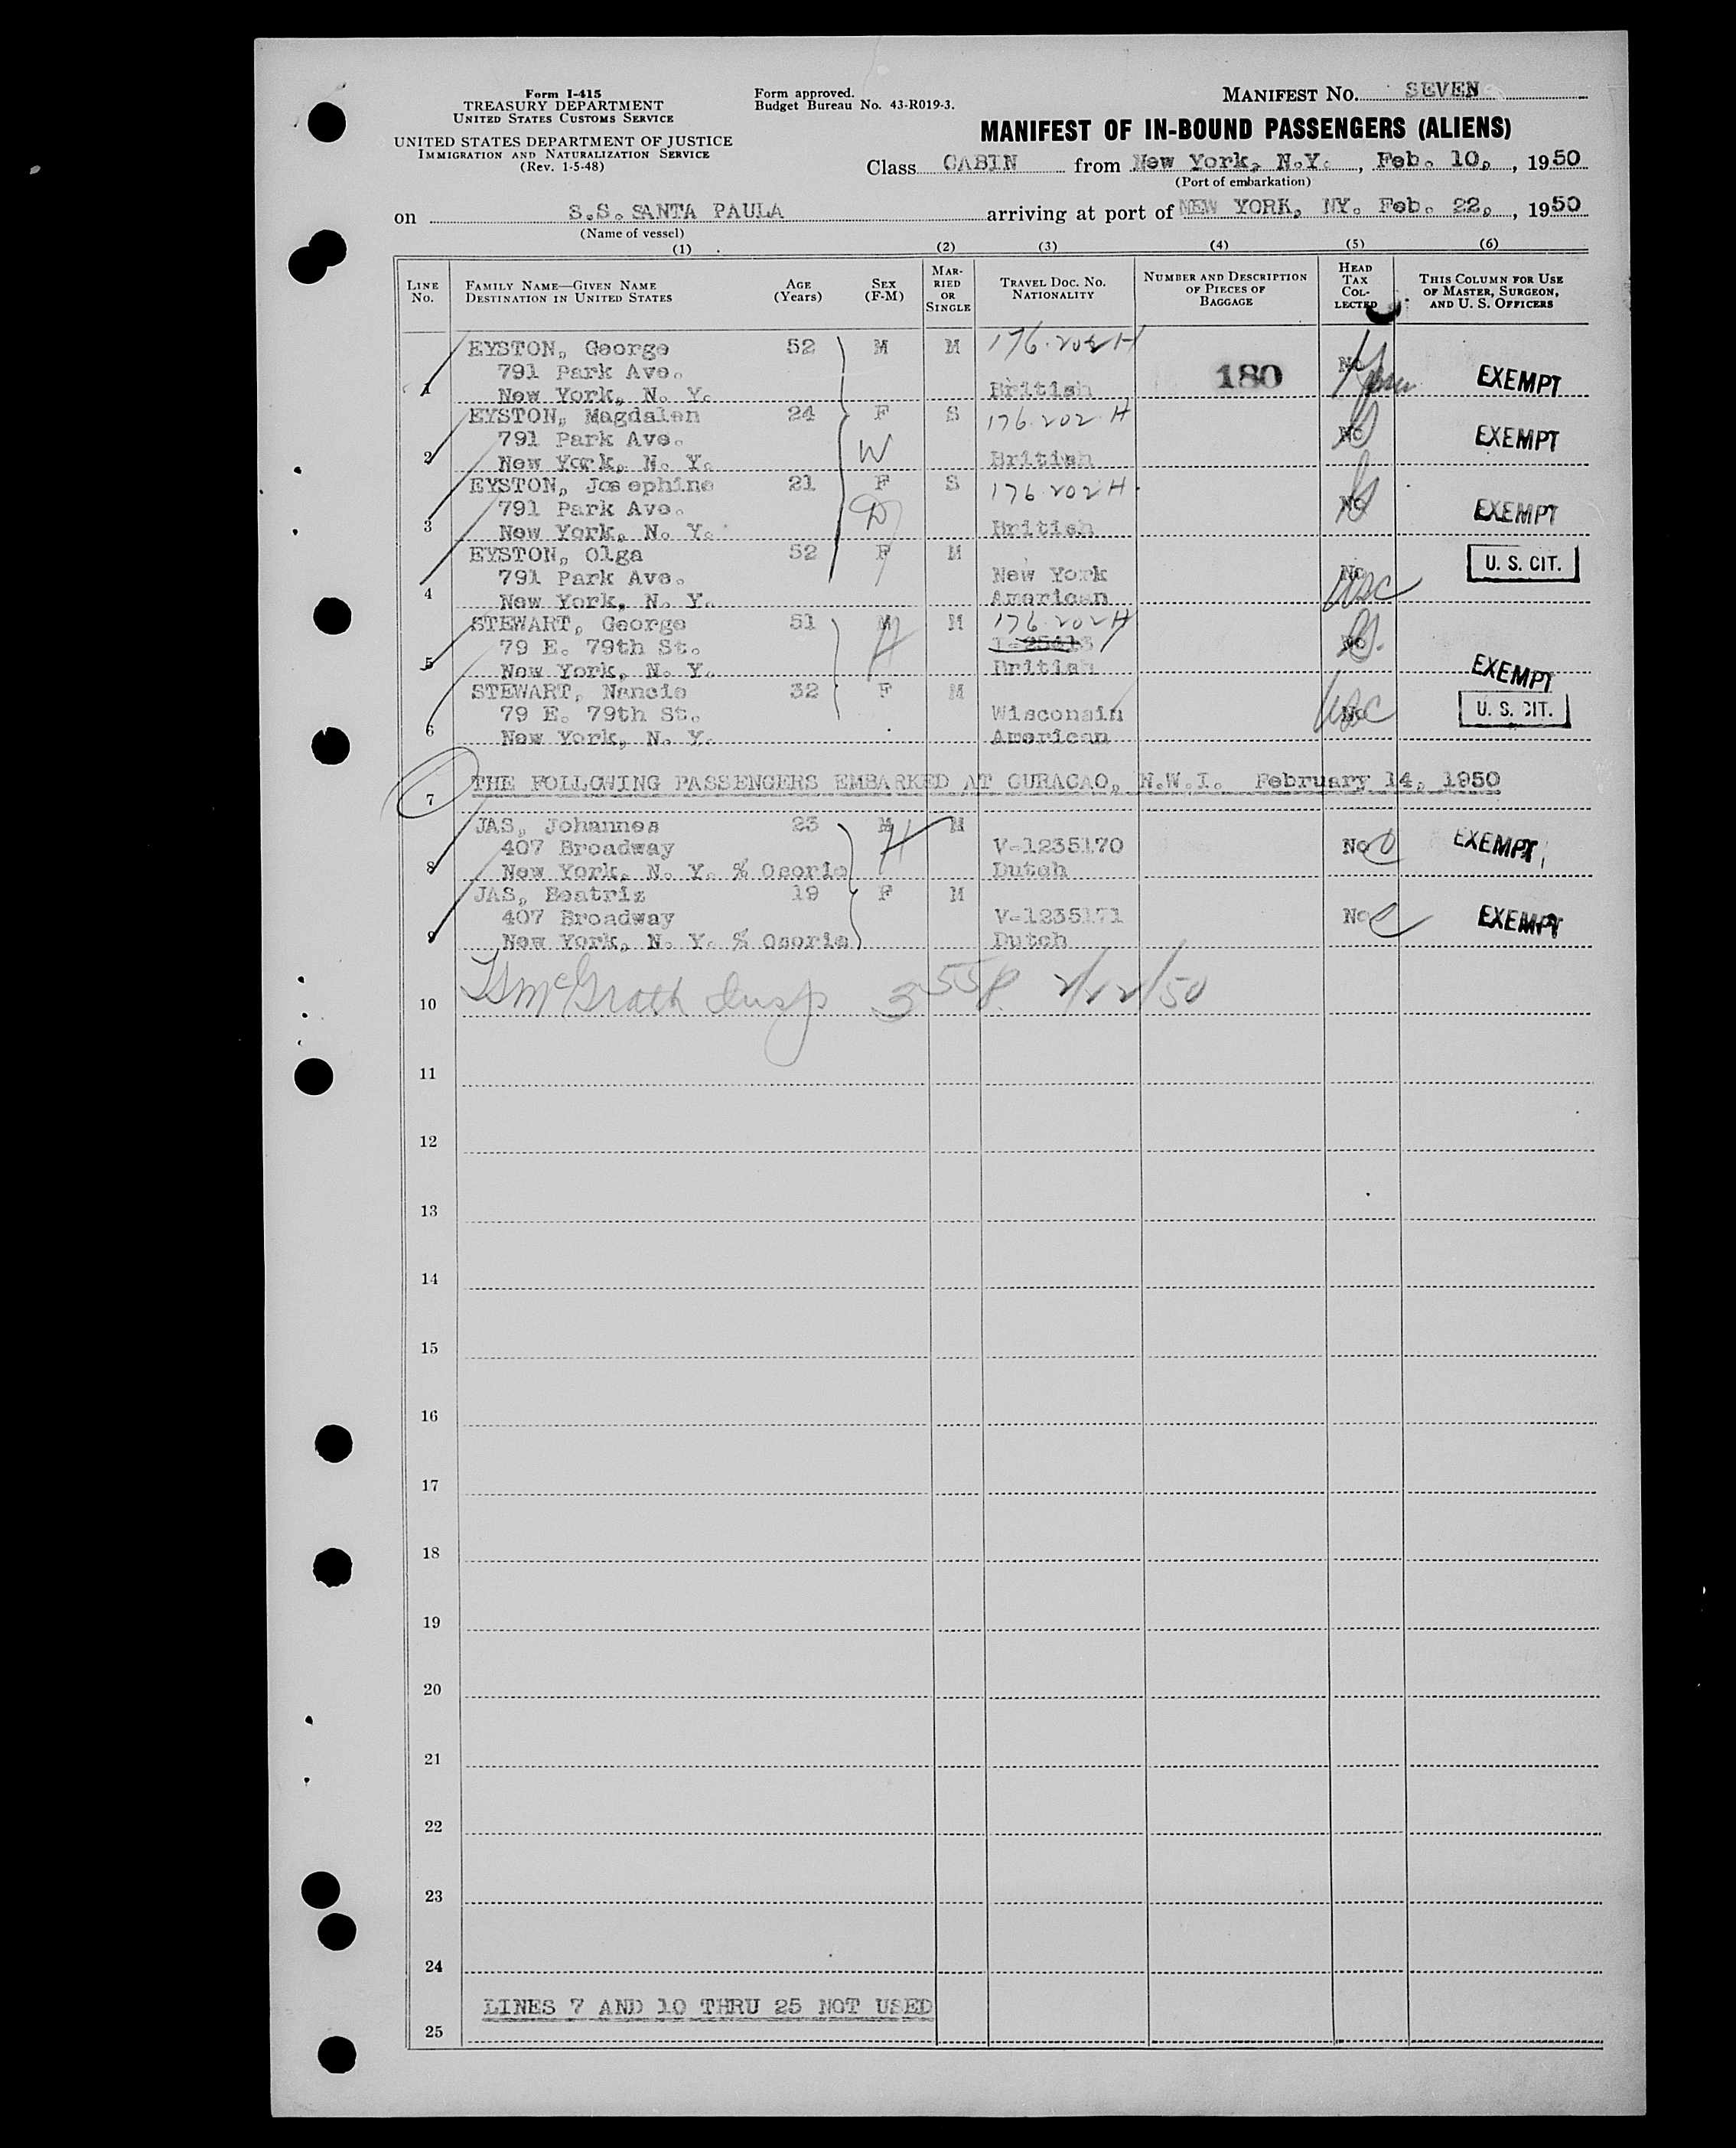 Form I-415
TREASURY DEPARTMENT
UNITED STATES CUSTOMS SERVICE
UNITED STATES DEPARTMENT OF JUSTICE
IMMIGRATION AND NATURALIZATION SERVICE
(Rev. 1-5-48)
Form approved.
Budget Bureau No. 43-R019-3.
MANIFEST No. SEVEN
MANIFEST OF IN-BOUND PASSENGERS (ALIENS)
Class CABIN from New York, N.Y. , Feb. 10, , 1950
(Port of embarkation)
on S.S. SANTA PAULA arriving at port of NEW YORK, NY. Feb. 22, , 1950
(Name of vessel)
(1) (2) (3) (4) (5) (6)
LINE No.
FAMILY NAME—GIVEN NAME
DESTINATION IN UNITED STATES
AGE (Years)
SEX (F-M)
MARRIED OR SINGLE
TRAVEL DOC. NO.
NATIONALITY
NUMBER AND DESCRIPTION OF PIECES OF BAGGAGE
HEAD TAX COLLECTED
THIS COLUMN FOR USE OF MASTER, SURGEON, AND U. S. OFFICERS
EYSTON, George 52 M M 176.202H
791 Park Ave. 180 No EXEMPT
1 New York, N. Y. British
EYSTON, Magdalen 24 F S 176.202 H
791 Park Ave. W No EXEMPT
2 New York, N. Y. British
EYSTON, Josephine 21 F S 176.202 H
791 Park Ave. D No EXEMPT
3 New York, N. Y. British
EYSTON, Olga 52 F M U. S. CIT.
791 Park Ave. New York No
4 New York, N. Y. American USC
STEWART, George 51 M M 176.202H
79 E. 79th St. H No
5 New York, N. Y. British EXEMPT
STEWART, Nancie 32 F M
79 E. 79th St. Wisconsin No USC U. S. CIT.
6 New York, N. Y. American
7 THE FOLLOWING PASSENGERS EMBARKED AT CURACAO, N.W.I. February 14, 1950
JAS, Johannes 23 M M
407 Broadway H V-1235170 No EXEMPT
8 New York, N. Y. % Osorio Dutch
JAS, Beatriz 19 F M
407 Broadway V-1235171 No EXEMPT
9 New York, N. Y. % Osorio Dutch
10 McGrath Insp 3 55 P 2/22/50
11
12
13
14
15
16
17
18
19
20
21
22
23
24
LINES 7 AND 10 THRU 25 NOT USED
25